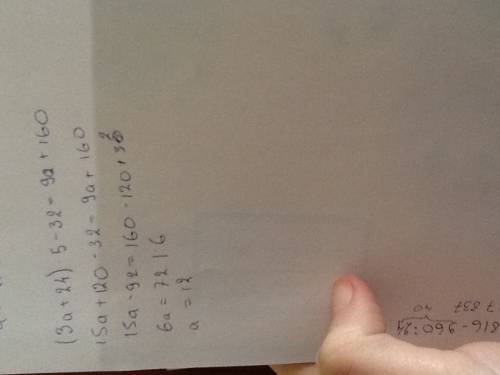 (3a+24) · 5 - 32 = 9a + 160
15a + 120 - 32 = 9a + 160
15a - 9a = 160 - 120 + 32
6a = 72 |:6
a = 12
816 - 960:24
40
7 837